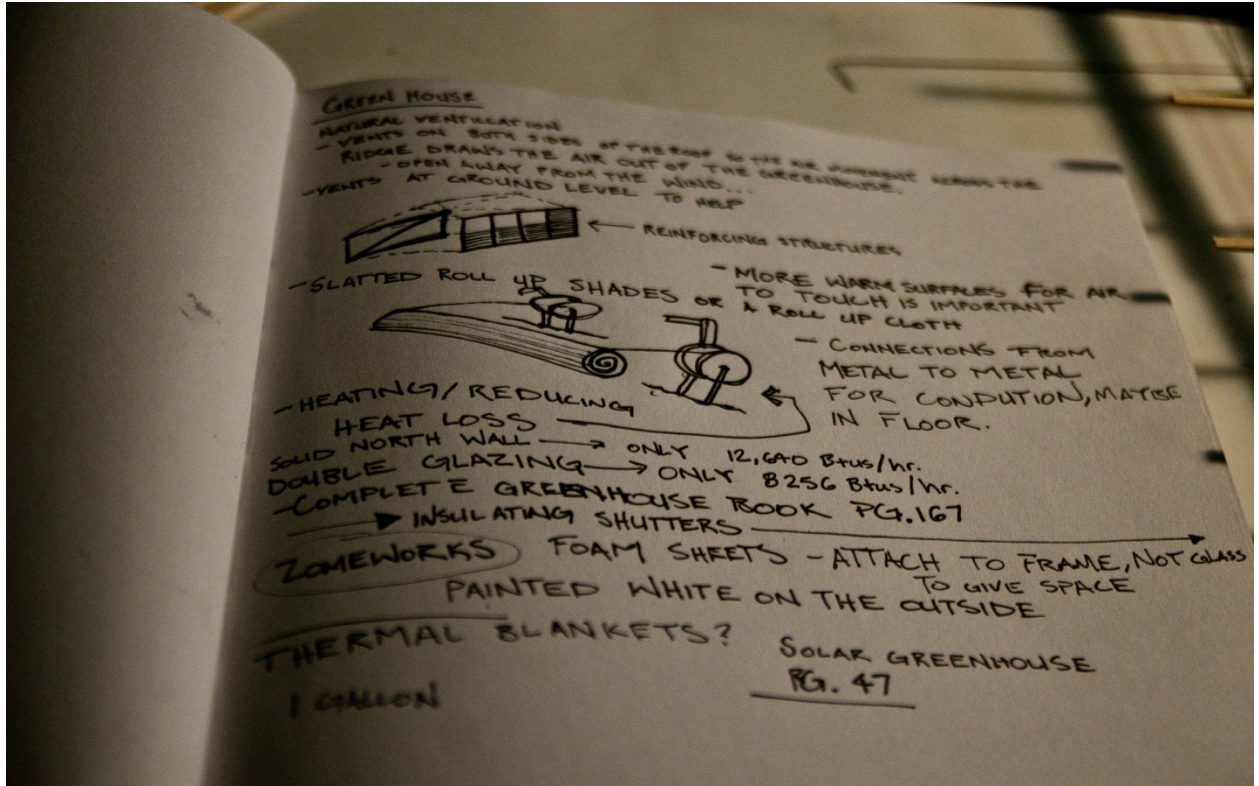 GREEN HOUSE
NATURAL VENTILLATION
- VENTS ON BOTH SIDES OF THE ROOF SO THE AIR MOVEMENT ACROSS THE
RIDGE DRAWS THE AIR OUT OF THE GREENHOUSE.
- OPEN AWAY FROM THE WIND...
- VENTS AT GROUND LEVEL TO HELP
REINFORCING STRUCTURES
- SLATTED ROLL UP SHADES OR A ROLL UP CLOTH
- MORE WARM SURFACES FOR AIR
TO TOUCH IS IMPORTANT
- CONNECTIONS FROM
METAL TO METAL
FOR CONDUTION, MAYBE
IN FLOOR.
- HEATING/REDUCING
HEAT LOSS
SOLID NORTH WALL → ONLY 12,640 Btus/hr.
DOUBLE GLAZING → ONLY 8256 Btus/hr.
- COMPLETE GREENHOUSE BOOK PG.167
INSULATING SHUTTERS
ZOMEWORKS FOAM SHEETS - ATTACH TO FRAME, NOT GLASS
TO GIVE SPACE
PAINTED WHITE ON THE OUTSIDE
THERMAL BLANKETS?
SOLAR GREENHOUSE
PG. 47
1 GALLON